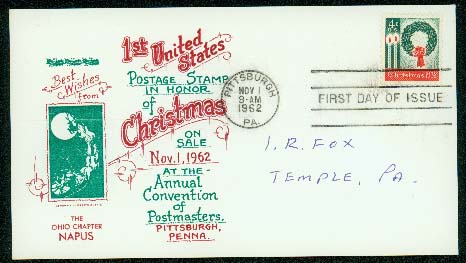 Best
Wishes
from
THE
OHIO CHAPTER
NAPUS
1st United
States
POSTAGE STAMP
IN HONOR
of
Christmas
ON
SALE
Nov. 1, 1962
AT THE
Annual
Convention
of
Postmasters.
PITTSBURGH,
PENNA.
PITTSBURGH
NOV 1
9-AM
1962
PA.
4¢
Christmas 1962
FIRST DAY OF ISSUE
I. R. FOX
TEMPLE, PA.